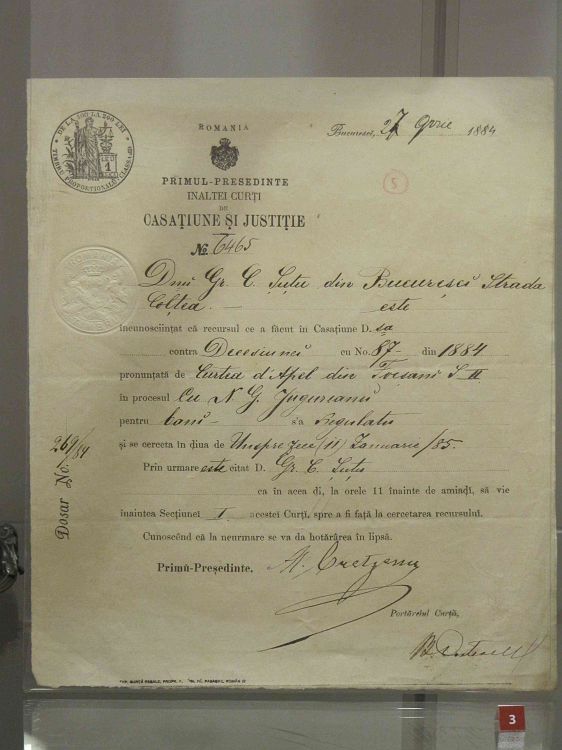 DE LA 100 LA 200 LEI
TIMBRU PROPORTIONALŬ
ROMANIA
Bucuresci, 27 1884
5
PRIMUL-PRESEDINTE
INALTEI CURŢI
DE
CASAŢIUNE ŞI JUSTIŢIE
No. 6465
Dnŭ Gr. C. Şuţu din Bucuresci Strada
Colţea. — este
incunosciinţat că recursul ce a făcut în Casaţiune D. sa
contra Decesiuneĭ cu No. 87 din 1884
pronunţată de Curtea d'Apel din Focşanĭ S. II
in procesul Cu N G.
pentru banĭ s'a regulatŭ
şi se cerceta in ḑiua de Unspre ḑece (11) Ianuarie /85.
Prin urmare este citat D. Gr. C. Şuţu
ca in acea ḑi, la orele 11 inainte de amiaḑi, să vie
inaintea Secţiunei I acestei Curţi, spre a fi faţă la cercetarea recursului.
Cunoscĕnd că la neurmare se va da hotărârea în lipsă.
Primŭ-Preşedinte,
Portărelul Curţii,
Dosar No. 269/84
3